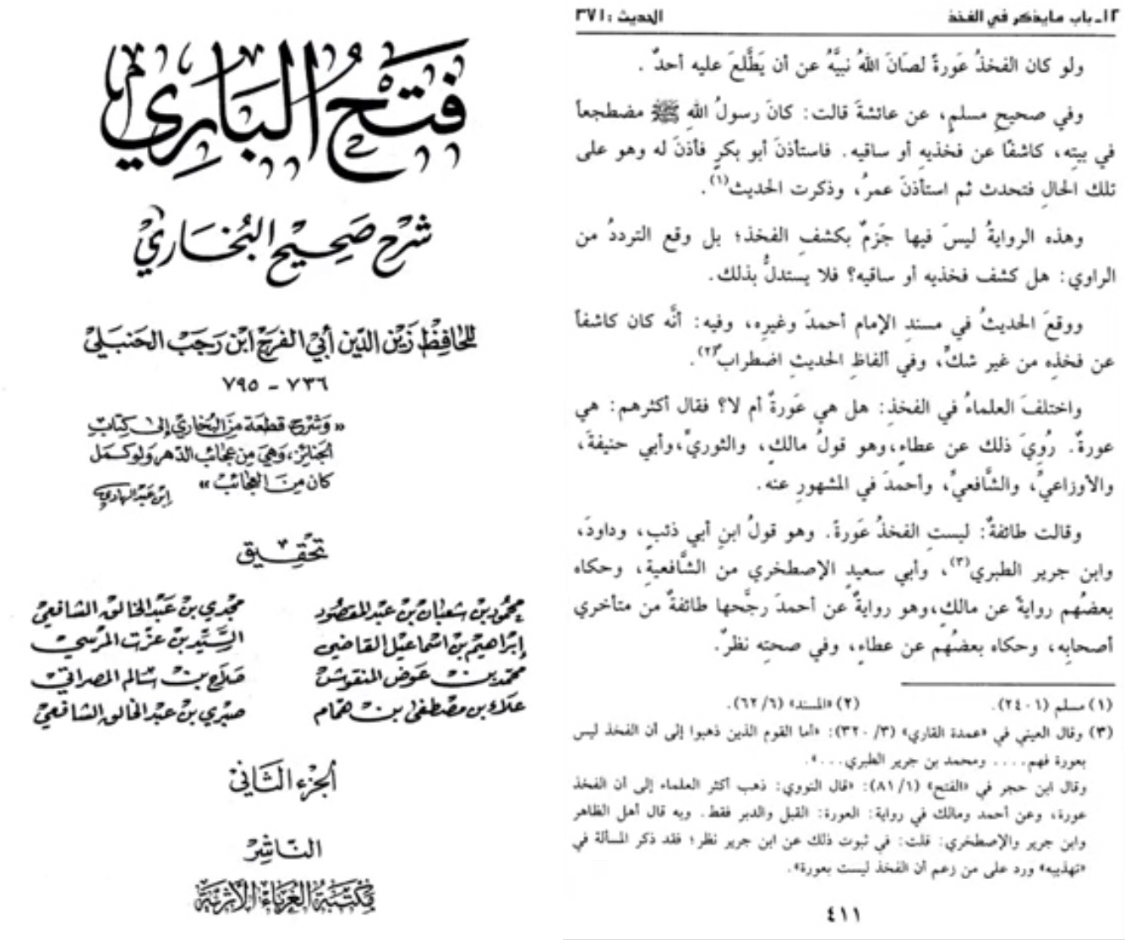 فَتْحُ البَارِي
شَرْحُ صَحِيحِ البُخَارِيّ
للحافظ زين الدين أبي الفرج ابن رجب الحنبلي
٧٣٦ - ٧٩٥
« وشرح قطعة من البخاري إلى كتاب
الجنائز، وهي من عجائب الدهر ولو كمل
كان من العجائب »
ابن عبد الهادي
تحقيق
محمود بن شعبان بن عبد المقصود
مجدي بن عبد الخالق الشافعي
إبراهيم بن اسماعيل القاضي
السيد بن عزت المرسي
محمد بن عوض المنقوش
صلاح بن سالم المصراتي
علاء بن مصطفى بن همام
صبري بن عبد الخالق الشافعي
الجزء الثاني
الناشر
مكتبة الغرباء الأثرية
١٢ـ باب ما يذكر في الفخذ
الحديث : ٣٧١
ولو كان الفخذُ عَورةً لصَانَ اللهُ نبيَّهُ عن أن يَطَّلعَ عليه أحدٌ .
وفي صحيحِ مسلمٍ، عن عائشةَ قالت: كانَ رسولُ اللهِ ﷺ مضطجعاً
في بيتِه، كاشفًا عن فخذيهِ أو ساقيه. فاستأذنَ أبو بكرٍ فأذنَ له وهو على
تلك الحالِ فتحدث ثم استأذنَ عمرُ، وذكرت الحديث(١).
وهذه الروايةُ ليسَ فيها جَزمٌ بكشفِ الفخذ؛ بل وقع الترددُ من
الراوي: هل كشف فخذيه أو ساقيه؟ فلا يستدلُّ بذلك.
ووقعَ الحديثُ في مسندِ الإمام أحمدَ وغيرِه، وفيه: أنَّه كان كاشفاً
عن فخذِه من غير شكٍّ، وفي ألفاظِ الحديثِ اضطرابٌ(٢).
واختلفَ العلماءُ في الفخذِ: هل هي عَورةٌ أم لا؟ فقال أكثرهم: هي
عورةٌ. رُوِيَ ذلك عن عطاءٍ،وهو قولُ مالكٍ، والثوريِّ،وأبي حنيفةَ،
والأوزاعيِّ، والشَّافعيِّ، وأحمدَ في المشهورِ عنه.
وقالت طائفةٌ: ليستِ الفخذُ عَورةً. وهو قولُ ابنِ أبي ذئبٍ، وداودَ،
وابن جرير الطبري(٣)، وأبي سعيدٍ الإصطخري من الشَّافعيةِ، وحكاه
بعضُهم روايةً عن مالكٍ،وهو روايةٌ عن أحمدَ رجَّحها طائفةٌ من متأخري
أصحابِه، وحكاه بعضُهم عن عطاءٍ، وفي صحتِه نظرٌ.
(١) مسلم (٢٤٠١). (٢) «المسند» (٦٢/٦).
(٣) وقال العيني في «عمدة القاري» (٣/ ٣٢٠): «أما القوم الذين ذهبوا إلى أن الفخذ ليس
بعورة فهم.... ومحمد بن جرير الطبري...».
وقال ابن حجر في «الفتح» (٨١/٦): «قال النووي: ذهب أكثر العلماء إلى أن الفخذ
عورة، وعن أحمد ومالك في رواية: العورة: القبل والدبر فقط. وبه قال أهل الظاهر
وابن جرير والإصطخري: قلت: في ثبوت ذلك عن ابن جرير نظر؛ فقد ذكر المسألة في
«تهذيبه» ورد على من زعم أن الفخذ ليست بعورة».
٤١١